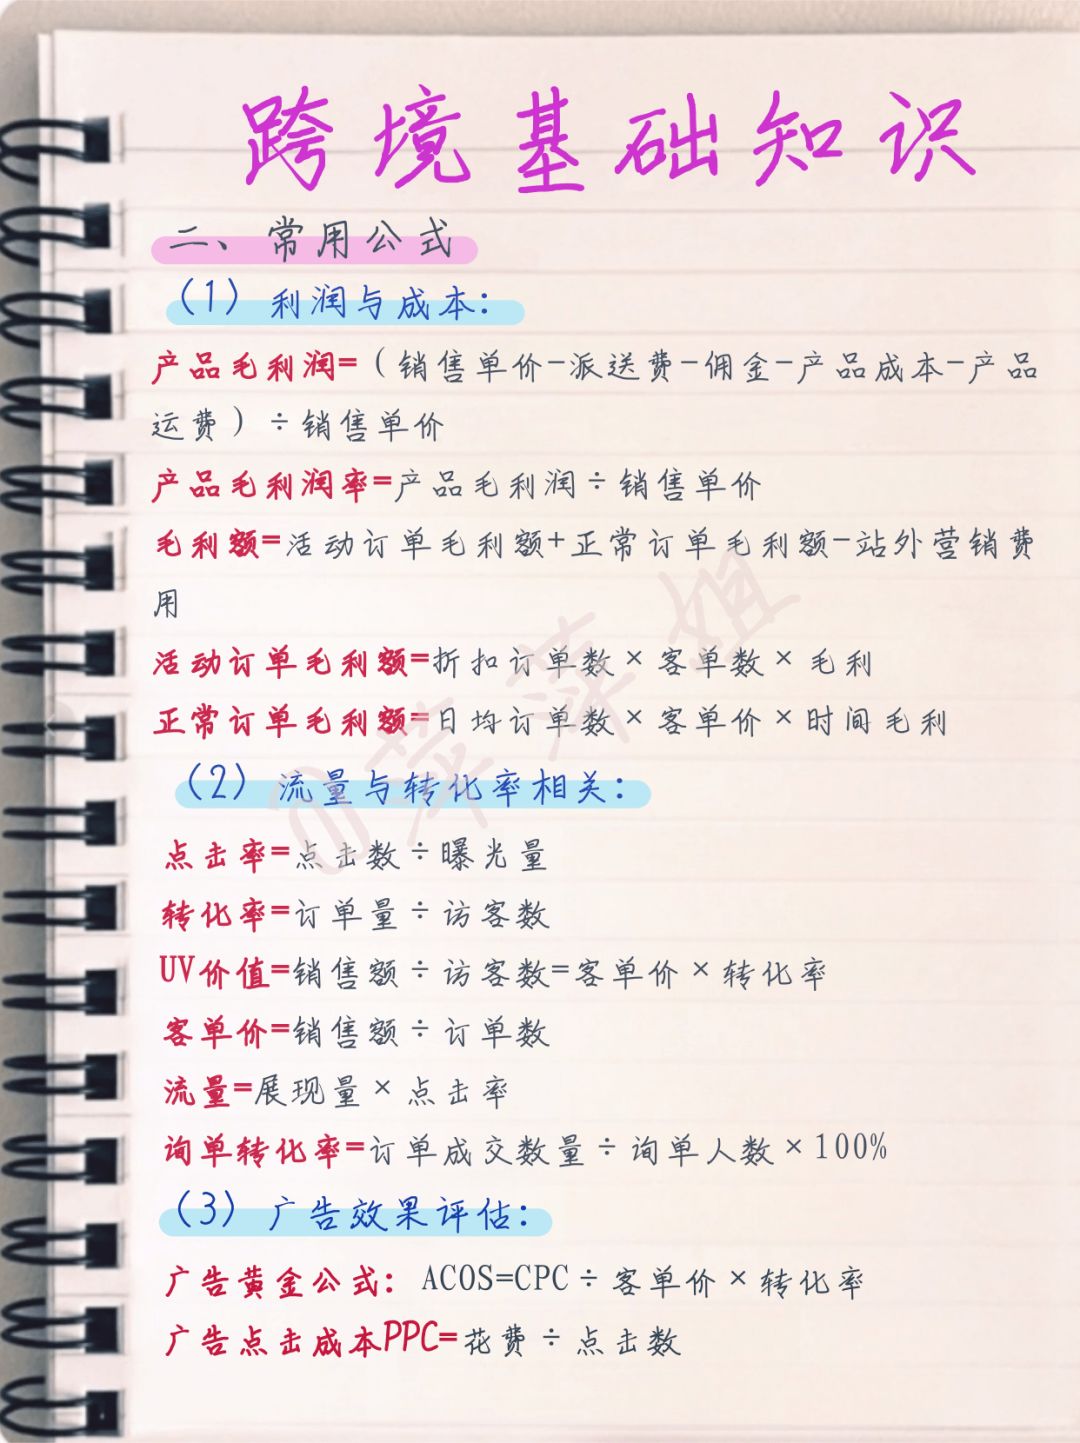 跨境基础知识
二、常用公式
（1）利润与成本：
产品毛利润=（销售单价-派送费-佣金-产品成本-产品
运费）÷销售单价
产品毛利润率=产品毛利润÷销售单价
毛利额=活动订单毛利额+正常订单毛利额-站外营销费
用
活动订单毛利额=折扣订单数×客单数×毛利
正常订单毛利额=日均订单数×客单价×时间毛利
（2）流量与转化率相关：
点击率=点击数÷曝光量
转化率=订单量÷访客数
UV价值=销售额÷访客数=客单价×转化率
客单价=销售额÷订单数
流量=展现量×点击率
询单转化率=订单成交数量÷询单人数×100%
（3）广告效果评估：
广告黄金公式：ACOS=CPC÷客单价×转化率
广告点击成本PPC=花费÷点击数
@萍萍姐